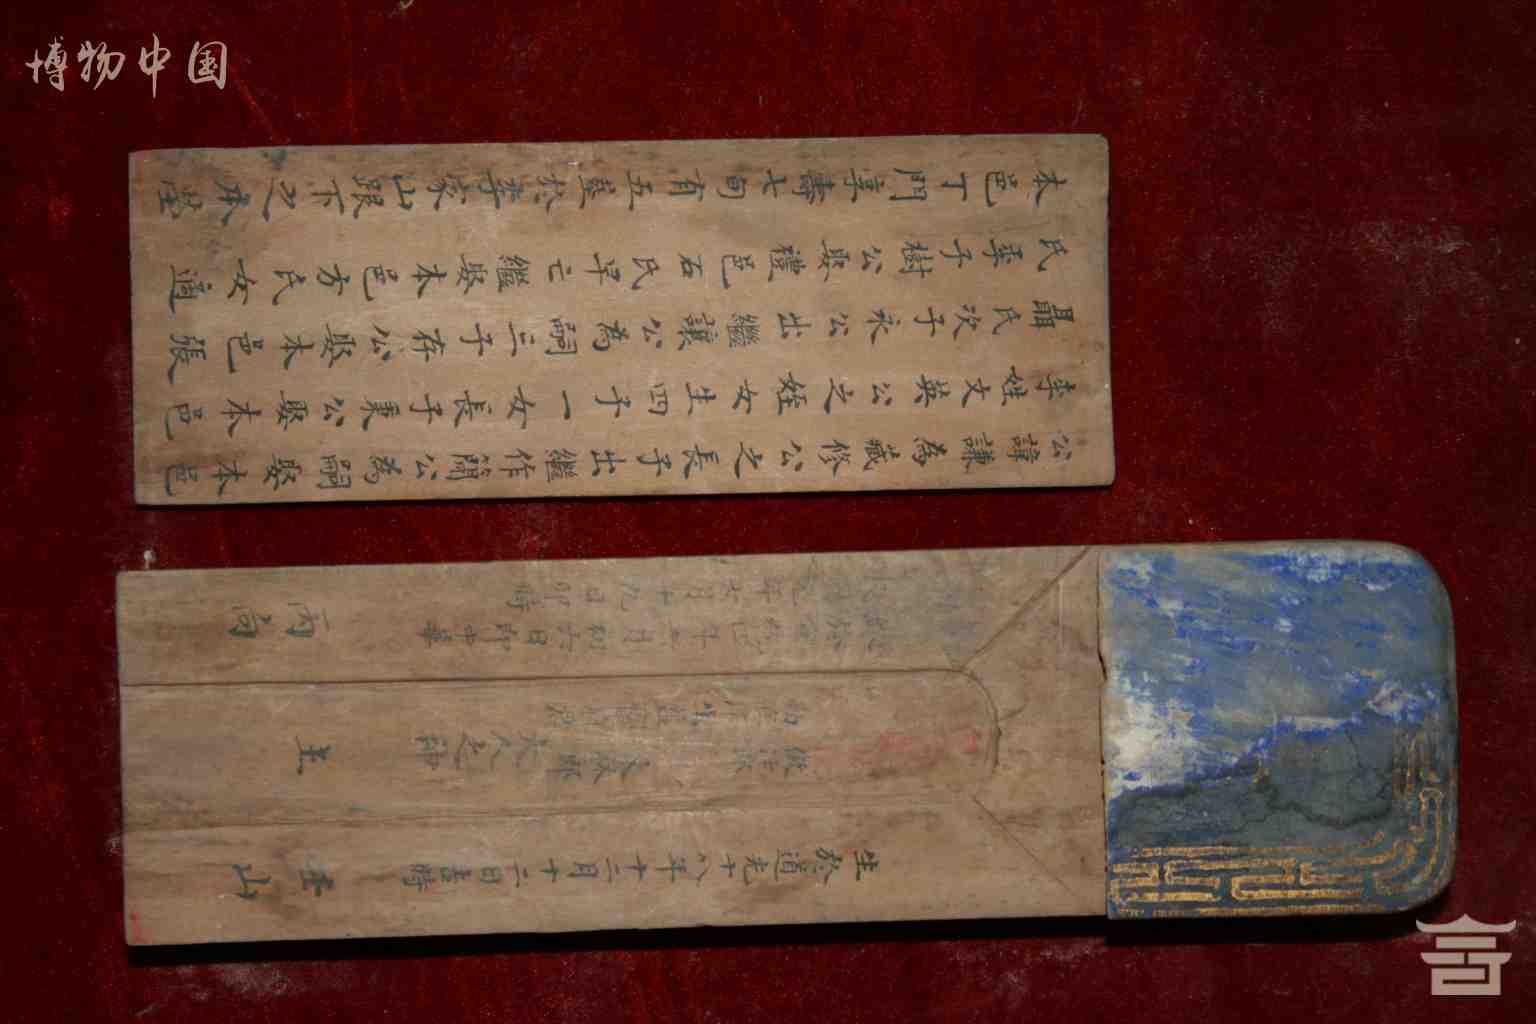 博物中国
公諱謙為藏修公之長子出繼作簡公為嗣娶本邑
李姓文英公之姪女生四子一女長子秉公娶本邑
聶氏次子永公出繼讓公為嗣三子存公娶本邑張
氏季子樹公娶禮邑石氏早亡繼娶本邑方氏女適
本邑丁門享壽七旬有五 於 家山跟下之
生於道光十八年十二月十二日 時
山
大人之神
主
月初六日
年 月十九日卯時
丙向